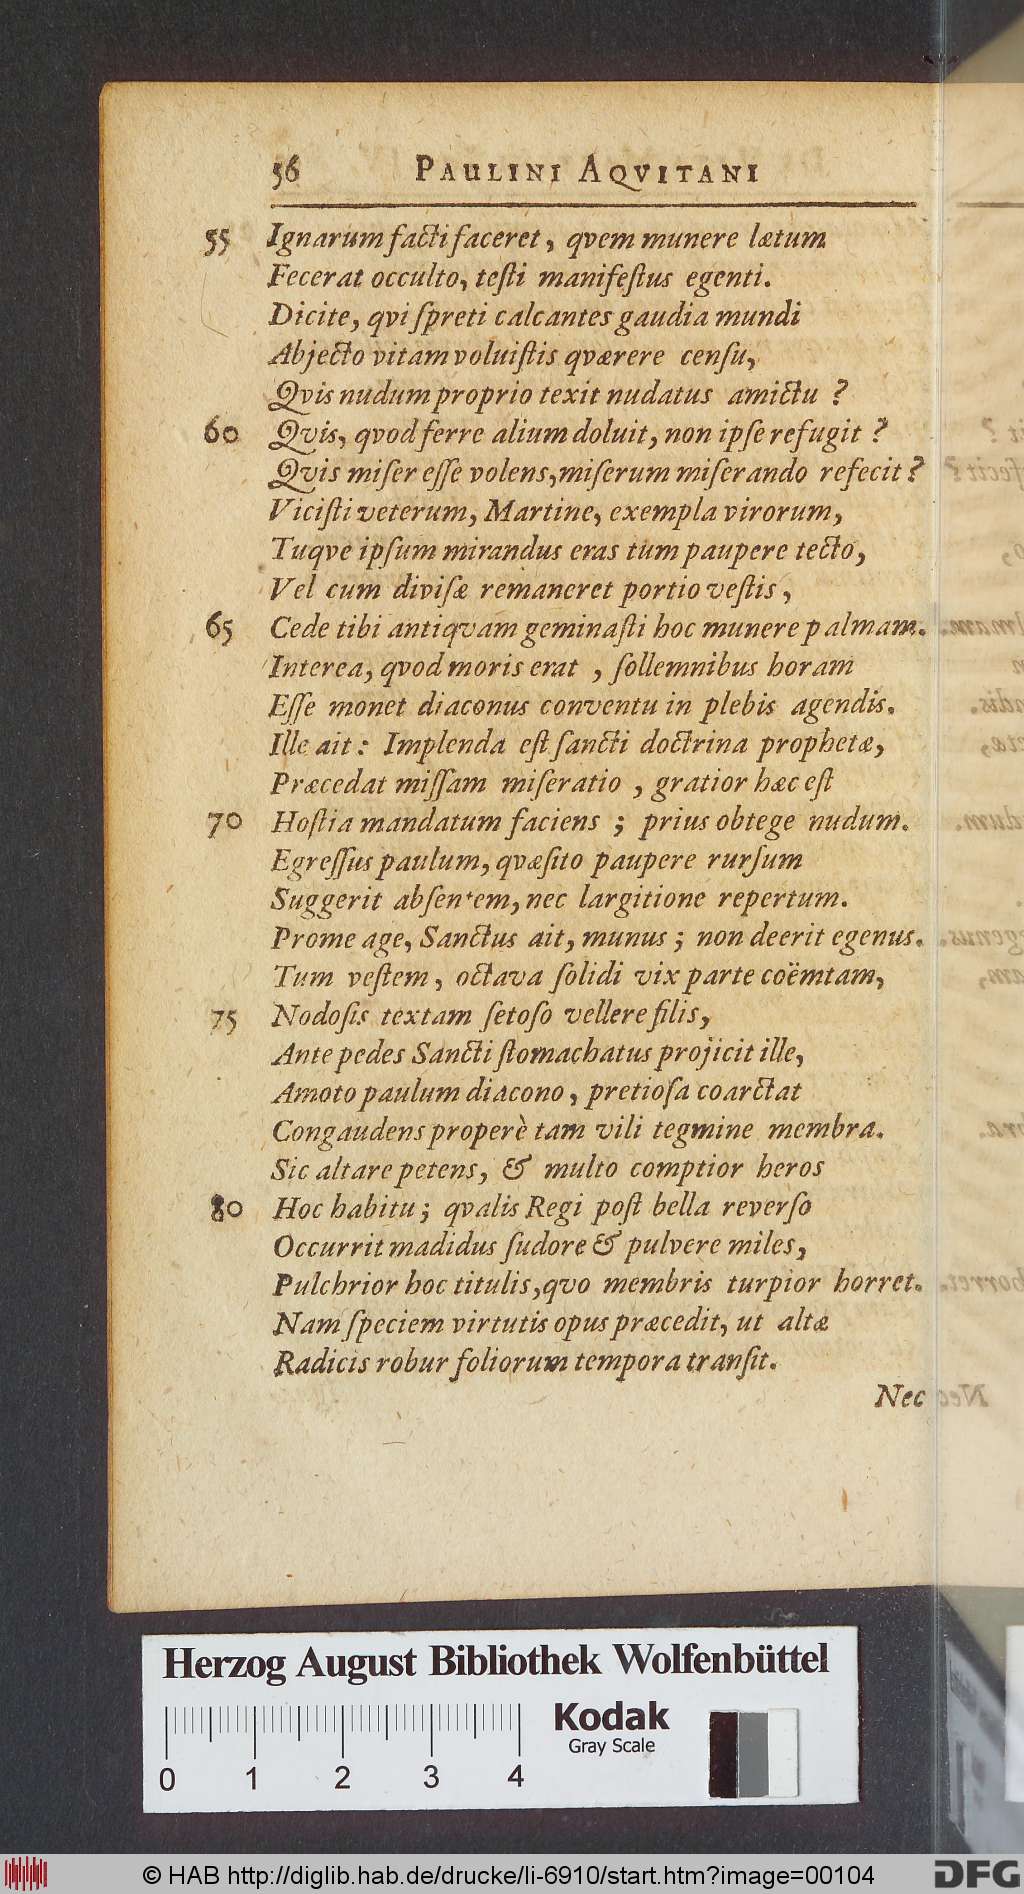 56 PAULINI AQVITANI
55 Ignarum facti faceret, qvem munere lætum
Fecerat occulto, teſti manifeſtus egenti.
Dicite, qvi ſpreti calcantes gaudia mundi
Abjecto vitam voluiſtis qværere cenſu,
Qvis nudum proprio texit nudatus amictu ?
60 Qvis, qvod ferre alium doluit, non ipſe refugit ?
Qvis miſer eſſe volens, miſerum miſerando refecit ?
Viciſti veterum, Martine, exempla virorum,
Tuqve ipſum mirandus eras tum paupere tecto,
Vel cum diviſæ remaneret portio veſtis,
65 Cede tibi antiqvam geminaſti hoc munere palmam.
Interea, qvod moris erat , ſollemnibus horam
Eſſe monet diaconus conventu in plebis agendis.
Ille ait: Implenda eſt ſancti doctrina prophetæ,
Præcedat miſſam miſeratio , gratior hæc eſt
70 Hoſtia mandatum faciens ; prius obtege nudum.
Egreſſus paulum, qvæſito paupere rurſum
Suggerit abſentem, nec largitione repertum.
Prome age, Sanctus ait, munus ; non deerit egenus.
Tum veſtem, octava ſolidi vix parte coëmtam,
75 Nodoſis textam ſetoſo vellere filis,
Ante pedes Sancti ſtomachatus projicit ille,
Amoto paulum diacono, pretioſa coarctat
Congaudens properè tam vili tegmine membra.
Sic altare petens, & multo comptior heros
80 Hoc habitu; qvalis Regi poſt bella reverſo
Occurrit madidus ſudore & pulvere miles,
Pulchrior hoc titulis, qvo membris turpior horret.
Nam ſpeciem virtutis opus præcedit, ut altæ
Radicis robur foliorum tempora tranſit.
Nec
Herzog August Bibliothek Wolfenbüttel
Kodak
Gray Scale
0 1 2 3 4
© HAB http://diglib.hab.de/drucke/li-6910/start.htm?image=00104
DFG